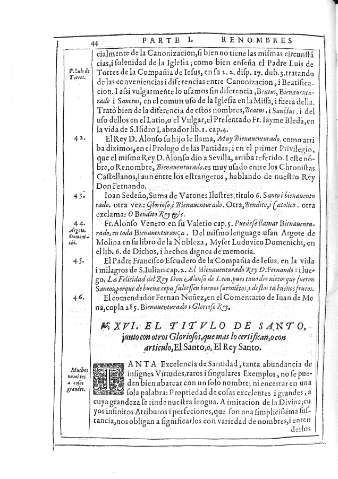 44 PARTE I. RENOMBRES
cialmente de la Canonizacion, si bien no tiene las mismas circunstā
cias, i solenidad de la Iglesia, como bien enseña el Padre Luis de
P. Luis de Torres.
Torres de la Compañia de Iesus, en sa 2. 2. disp. 17. dub. 3. tratando
de las conveniencias i diferencias entre Canonizacion, i Beatifica-
cion. I assi vulgarmente lo usamos sin diferencia, Beatus, Bienaventura-
rado i Santus, en el comun uso de la Iglesia en la Missa, i fuera della.
Tratò bien de la diferencia de estos nombres, Beatus, i Sanctus, i del
uso dellos en el Latin, o el Vulgar, el Presentado Fr. Iayme Bleda, en
la vida de S. Isidro Labrador lib. 1. cap. 4.
42.
El Rey D. Alonso su hijo le llama, Muy Bienaventurado, como arri
ba diximos, en el Prologo de las Partidas; i en el primer Privilegio,
que el mismo Rey D. Alonso diò a Sevilla, arriba referido. I este nō-
bre, o Renombre, Bienaventurado, es muy usado entre los Chronistas
Castellanos, i aun entre los estrangeros, hablando de nuestro Rey
Don Fernando.
43.
Ioan Sedeño, Suma de Varones Ilustres, titulo 6. Santo i bienaventu
rado. otra vez: Glorioso i Bienaventurado. Otra, Bendito, i Catolico. otra
exclama: O Bendito Rey &c.
44.
Fr. Alonso Venero en su Valerio cap. 5. Puedese llamar Bienaventu-
rado, en toda Bienaventurança. Del mismo lenguaje usan Argote de
Argote.
Molina en su libro de la Nobleza, Mysser Ludovico Dumenichi, en
el lib. 6. de Dichos, i hechos dignos de memoria.
45.
El Padre Francisco Escudero de la Compañia de Iesus, en la vida
i milagros de S. Iulian cap. 2. El Bienaventurado Rey D. Fernando: i lue-
go. La Felicidad del Rey Don Alonso de Leon, pues tuvo dos nietos que fueron
46.
El comendador Fernan Nuñez, en el Comentario de Iuan de Me
na, copla 285. Bienaventurado i Glorioso Rey.
XVI. EL TITVLO DE SANTO,
junto con otros Gloriosos, que mas lo certifican, o con
articulo, El Santo, o, El Rey Santo.
Muchos nombres a cosas grandes.
TANTA Excelencia de Santidad, tanta abundancia de
insignes Virtudes, raros i singulares Exemplos, no se pue-
den bien abarcar con un solo nombre; ni encerrar en una
sola palabra: Propiedad de cosas excelentes i grandes, a
cuya grandeza se rinde nuestra lengua. A imitacion de la Divina, cu
yos infinitos Atributos i perfecciones, que son una simplicissima sus-
tancia, nos obligan a significarlos con variedad de nombres, i enten
derlos